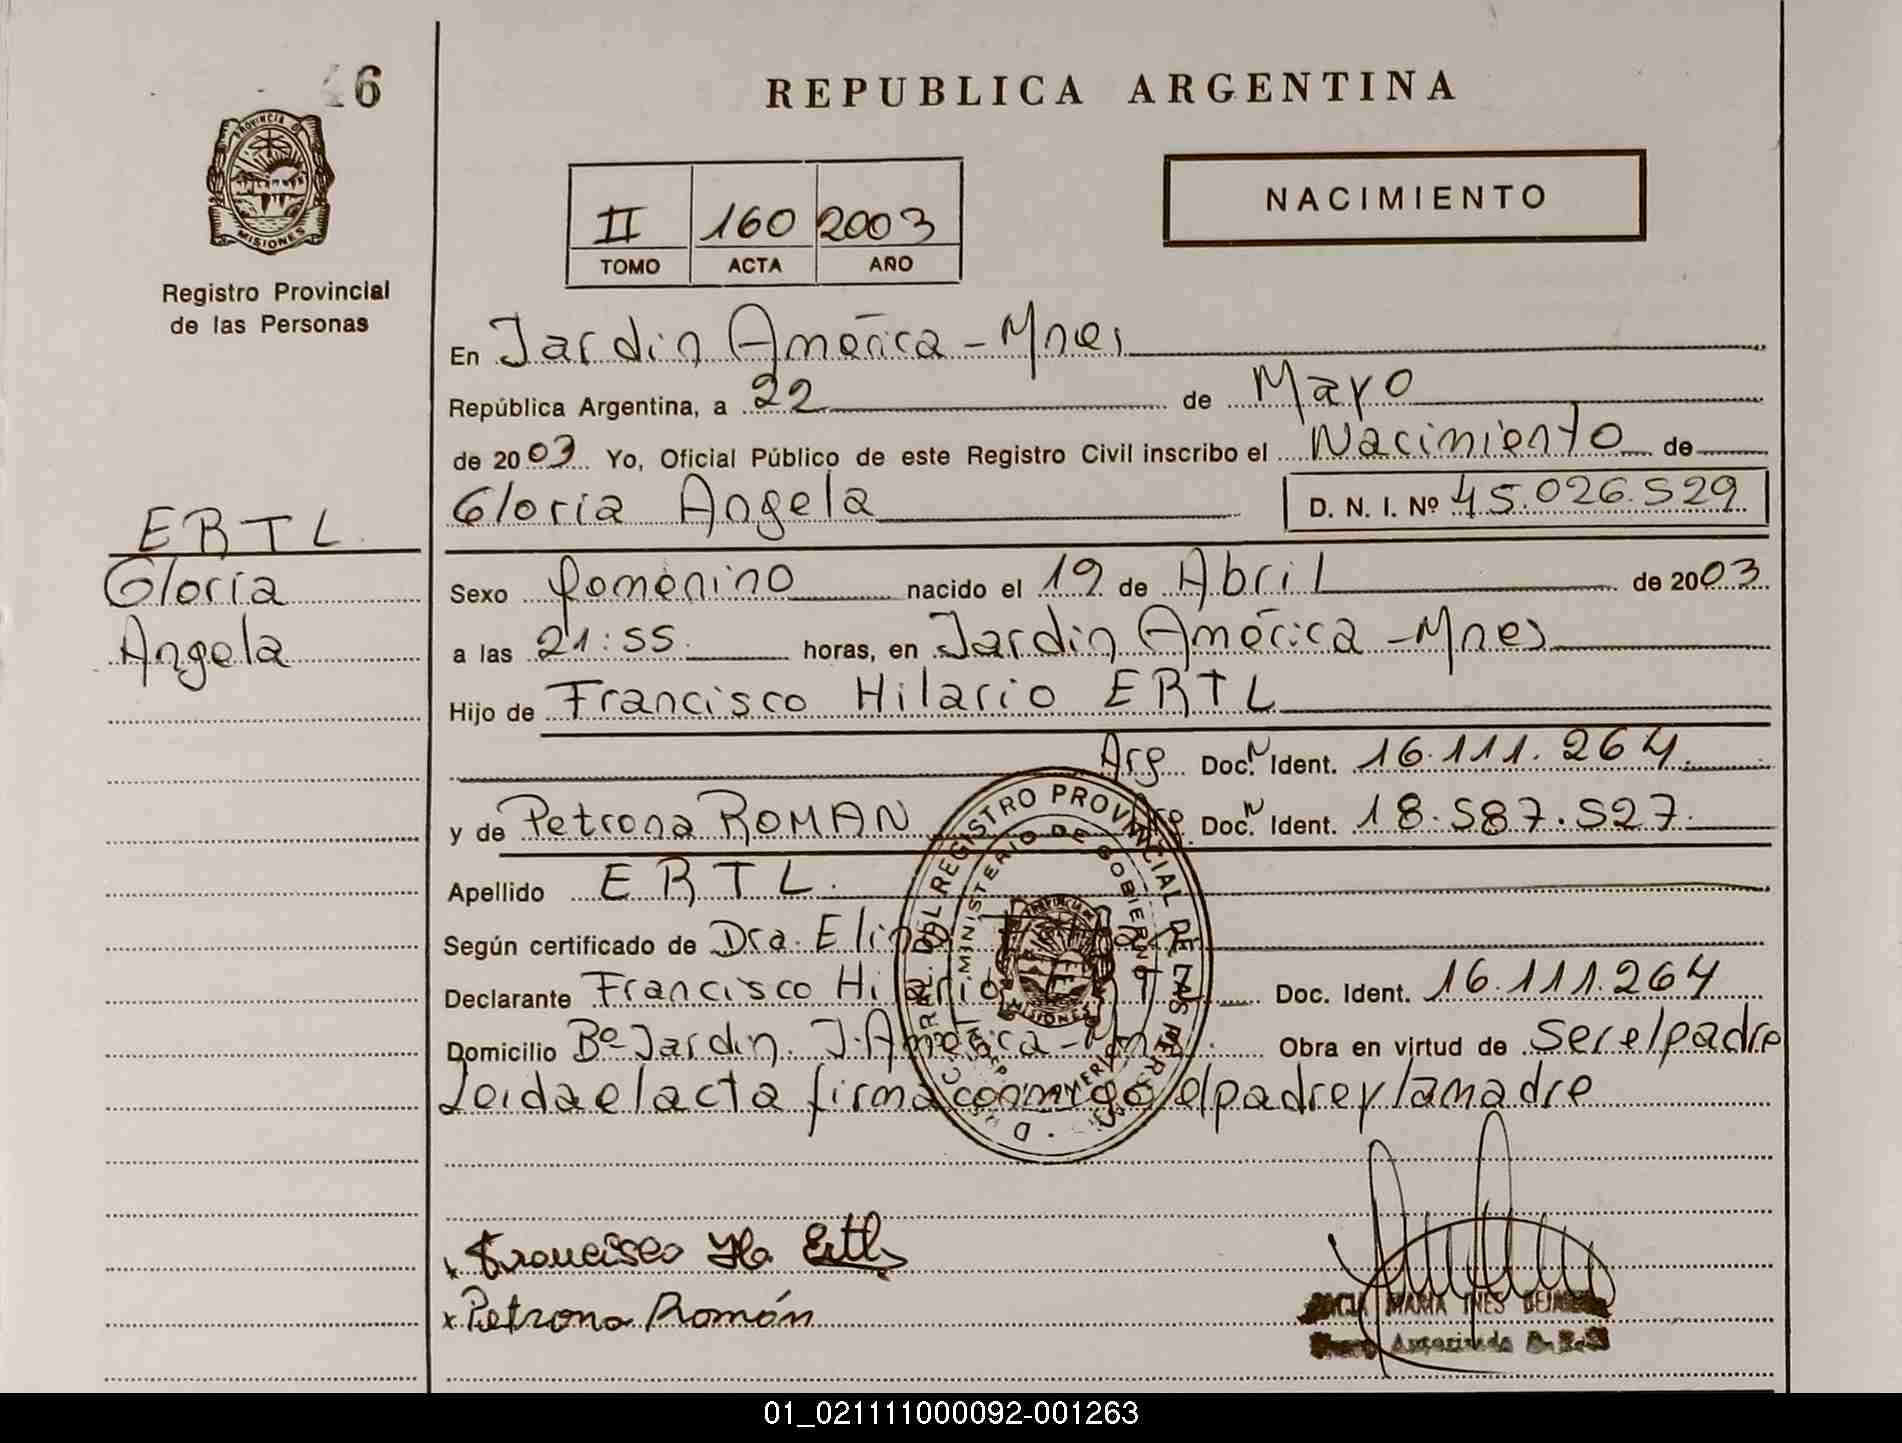 6
REPUBLICA ARGENTINA
PROVINCIA DE
MISIONES
Registro Provincial
de las Personas
NACIMIENTO
II 160 2003
TOMO ACTA AÑO
En Jardin América - Mnes
República Argentina, a 22 de Mayo
de 2003 Yo, Oficial Público de este Registro Civil inscribo el Nacimiento de
Gloria Angela D. N. I. Nº 45.026.529
ERTL
Gloria
Angela
Sexo femenino nacido el 19 de Abril de 2003
a las 21:55 horas, en Jardin América - Mnes
Hijo de Francisco Hilario ERTL
Arg Doc. N Ident. 16.111.264
y de Petrona ROMAN Arg Doc. N Ident. 18.587.527
Apellido ERTL.
Según certificado de Dra.
Declarante Francisco Hilario Doc. Ident. 16.111.264
Domicilio Bº Jardin. J. América - Obra en virtud de ser el padre
Leida el acta firma conmigo el padre y la madre
REGISTRO PROVINCIAL DE LAS
MINISTERIO DE GOBIERNO
MISIONES
x Francisco Ertl
x Petrona Román
MARIA INES
Autorizada
01_021111000092-001263